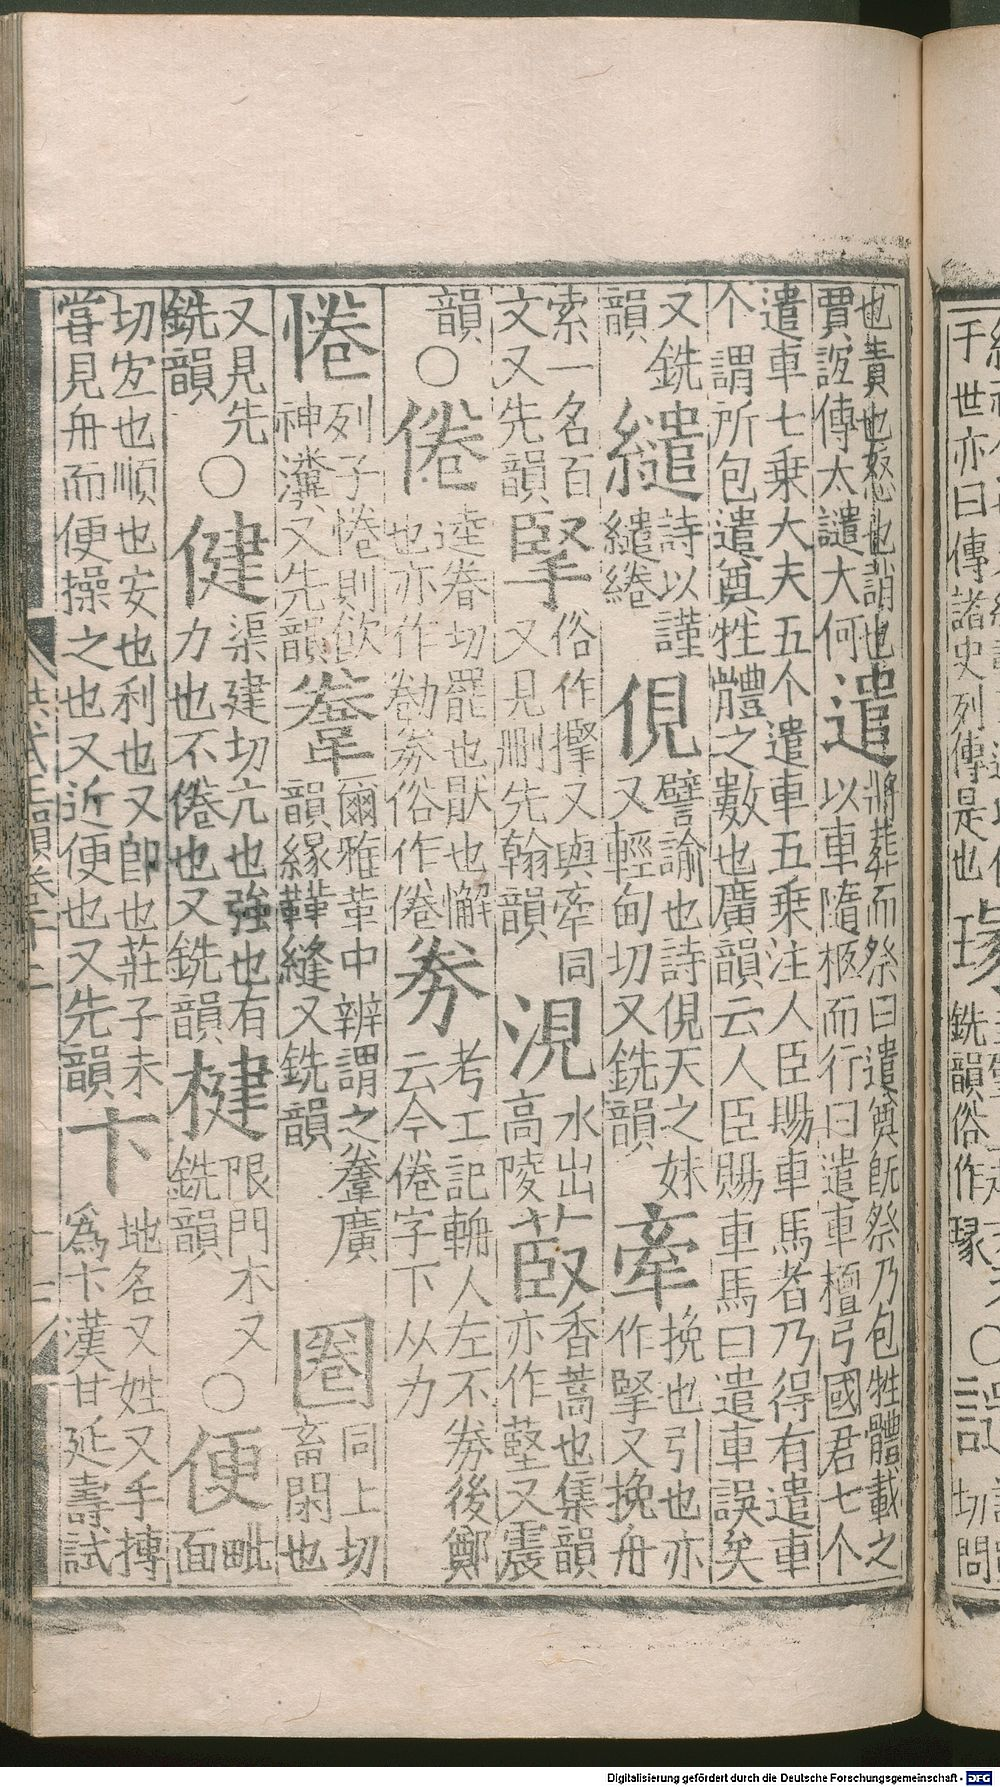 于世亦曰傳諸史列傳是也
銑韻俗作瑑
切問
也責也怒也誚也
賈誼傳大譴大何
遣
將葬而祭曰遣奠旣祭乃包牲體載之
以車隨柩而行曰遣車檀弓國君七个
遣車七乗大夫五个遣車五乗注人臣賜車馬者乃得有遣車
个謂所包遣奠牲體之數也廣韻云人臣賜車馬曰遣車誤矣
又銑
韻
繾
詩以謹
繾綣
俔
譬諭也詩俔天之妹
又輕甸切又銑韻
牽
挽也引也亦
作掔又挽舟
索一名百
文又先韻
掔
俗作㩓又與牽同
又見刪先翰韻
涀
水出
高陵
菣
香蒿也集韻
亦作藖又震
韻○
倦
逵眷切罷也猒也懈
也亦作勌劵俗作倦
劵
考工記輈人左不劵後鄭
云今倦字下从力
惓
列子惓則飲
神瀵又先韻
韏
爾雅革中辨謂之韏廣
韻緣鞾縫又銑韻
圈
同上切
畜閑也
又見先
銑韻
○健
渠建切亢也強也有
力也不倦也又銑韻
楗
限門木又
銑韻
○便
毗
面
切宐也順也安也利也又卽也莊子未
嘗見舟而便操之也又近便也又先韻
卞
地名又姓又手摶
爲卞漢甘延壽試
洪武正韻卷十二
Digitalisierung gefördert durch die Deutsche Forschungsgemeinschaft - DFG